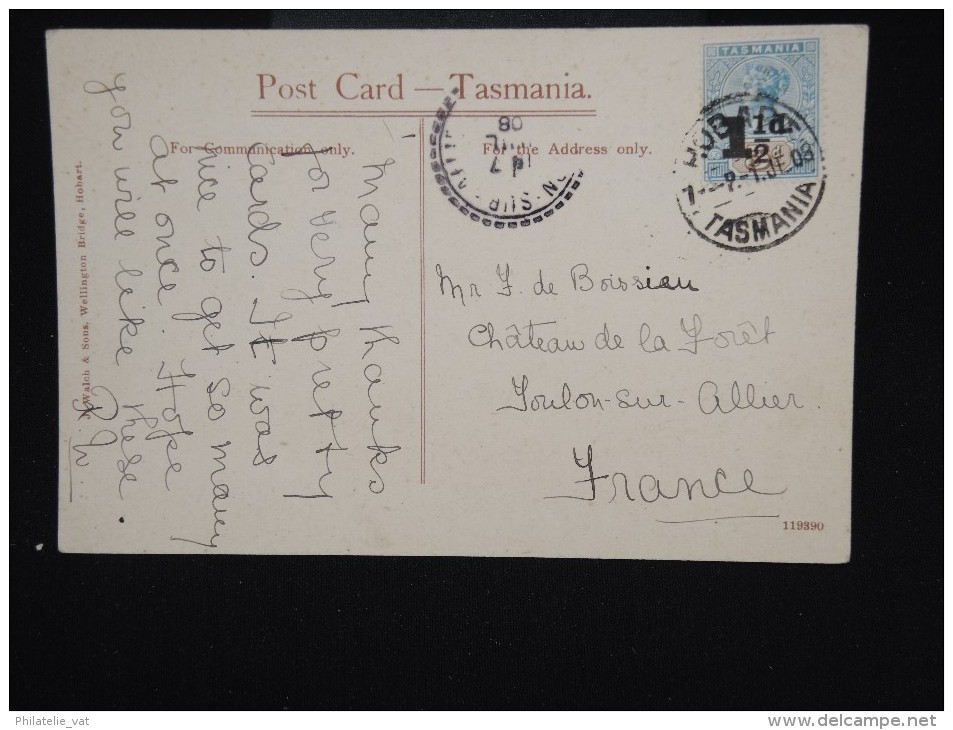 Post Card — Tasmania.
For Communication only.
For the Address only.
Many thanks
for very pretty
Cards. It was
nice to get so many
at once. Hope
you will like these.
R.W.
J. Walch & Sons, Wellington Bridge, Hobart.
TASMANIA
1½d.
HOBART
TASMANIA
08
SUR
Mr F. de Boissieu
Château de la Forêt
Toulon-sur-Allier.
France
119390
Philatelie_vat
www.delcampe.net